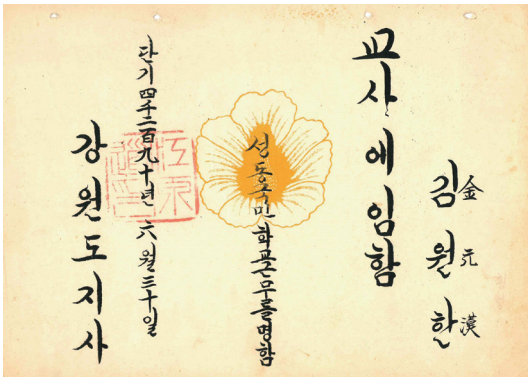 金元漢
김원한
교사에 임함
선동국민학교근무를명함
단기四千二百九十년 六월三十일
강원도지사